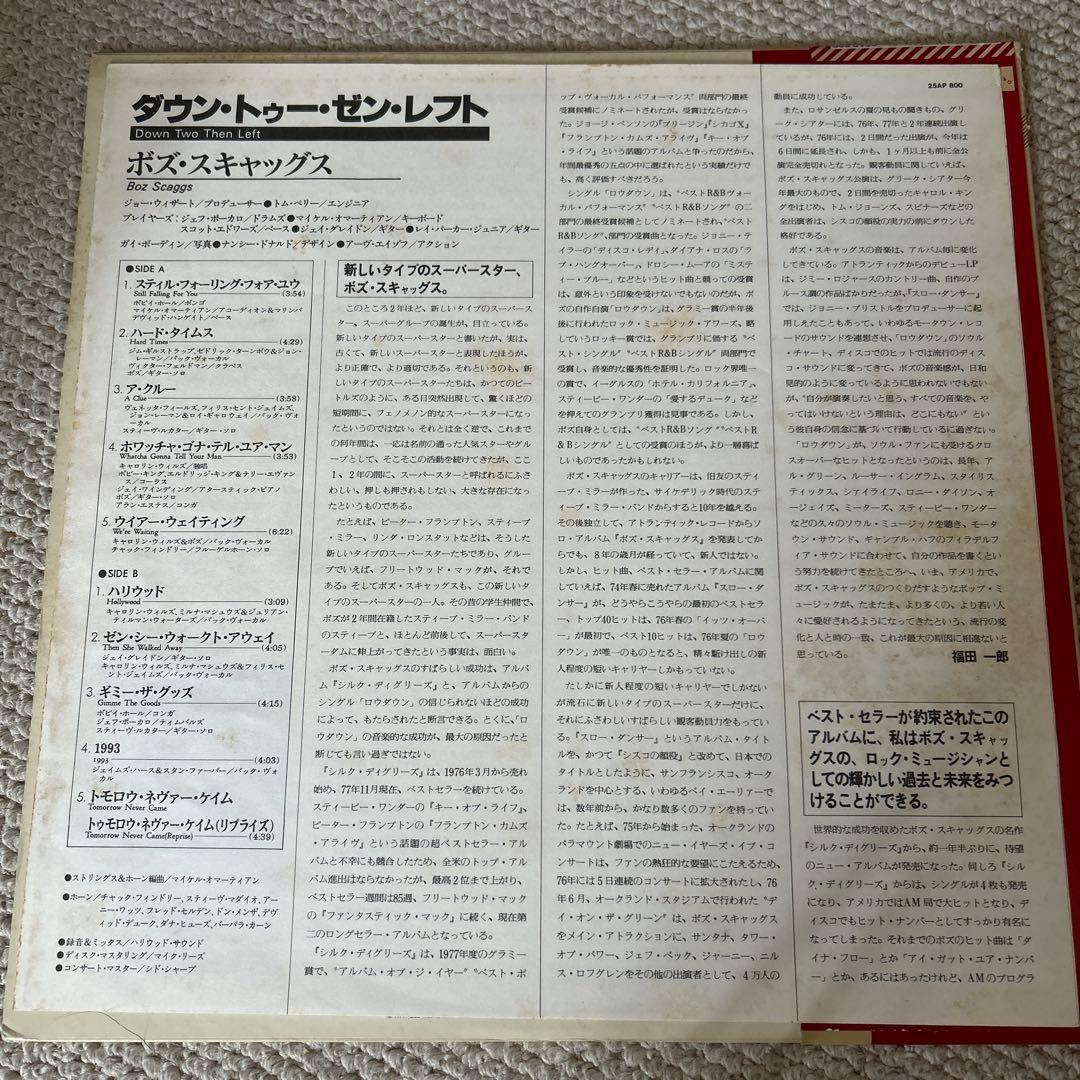 25AP 800
ダウン・トゥー・ゼン・レフト
Down Two Then Left
ボズ・スキャッグス
Boz Scaggs
ジョー・ウィザート/プロデューサー●トム・ペリー/エンジニア
プレイヤーズ:ジェフ・ポーカロ/ドラムズ●マイケル・オマーティアン/キーボード
スコット・エドワーズ/ベース●ジェイ・グレイドン/ギター●レイ・パーカー・ジュニア/ギター
ガイ・ボーディン/写真●ナンシー・ドナルド/デザイン●アーヴ・エイゾフ/アクション
●SIDE A
1. スティル・フォーリング・フォア・ユウ
Still Falling For You (3:54)
ボビイ・ホール/ボンゴ
マイケル・オマーティアン/アコーディオン&マリンバ
デヴィッド・ハンゲイト/ベース
2. ハード・タイムス
Hard Times (4:29)
ジム・ギルストラップ、ゼドリック・ターンボウ&ジョン・
レーマン/バック・ヴォーカル
ヴィクター・フェルドマン/クラベス
ボズ/ギター・ソロ
3. ア・クルー
A Clue (3:58)
ヴェネッタ・フィールズ、フィリス・セント・ジェイムズ、
ジョン・レーマン&ロイ・ギャロウェイ/バック・ヴ
ォーカル
スティーヴ・ルカター/ギター・ソロ
4. ホワッチャ・ゴナ・テル・ユア・マン
Whatcha Gonna Tell Your Man (3:53)
キャロリン・ウィルズ/独唱
ボビー・キング、エルドリッジ・キング&テリー・エヴァン
ス/コーラス
ジェイ・ワインディング/アクースティック・ピアノ
ボズ/ギター・ソロ
アラン・エステス/コンガ
5. ウイアー・ウェイティング
We're Waiting (6:22)
キャロリン・ウィルズ&ボズ/バック・ヴォーカル
チャック・フィンドリー/フルーゲルホーン・ソロ
●SIDE B
1. ハリウッド
Hollywood (3:09)
キャロリン・ウィルズ、ミルナ・マシュウズ&ジュリアン・
ティルマン・ウォーターズ/バック・ヴォーカル
2. ゼン・シー・ウォークト・アウェイ
Then She Walked Away (4:05)
ジェイ・グレイドン/ギター・ソロ
キャロリン・ウィルズ、ミルナ・マシュウズ&フィリス・セ
ント・ジェイムズ/バック・ヴォーカル
3. ギミー・ザ・グッズ
Gimme The Goods (4:15)
ボビイ・ホール/コンガ
ジェフ・ポーカロ/ティムバルズ
スティーヴ・ルカター/ギター・ソロ
4. 1993
1993 (4:03)
ジェイムズ・ハース&スタン・ファーバー/バック・ヴォ
カル
5. トモロウ・ネヴァー・ケイム
Tomorrow Never Came
トゥモロウ・ネヴァー・ケイム(リプライズ)
Tomorrow Never Came(Reprise) (4:39)
●ストリングス&ホーン編曲/マイケル・オマーティアン
●ホーン/チャック・フィンドリー、スティーヴ・マダイオ、アー
ニー・ワッツ、フレッド・セルデン、ドン・メンザ、デヴ
ィッド・デューク、ダナ・ヒューズ、バーバラ・カーン
●録音&ミックス/ハリウッド・サウンド
●ディスク・マスタリング/マイク・リーズ
●コンサート・マスター/シド・シャープ
新しいタイプのスーパースター、
ボズ・スキャッグス。
このところ2年ほど、新しいタイプのスーパースタ
ー、スーパーグループの誕生が、目立っている。
新しいタイプのスーパースターと書いたが、実は、
古くて、新しいスーパースターと表現したほうが、
より正確で、より適切である。それというのも、新
しいタイプのスーパースターたちは、かつてのビート
ルズのように、ある日突然出現して、驚くほどの
短期間に、フェノメノン的なスーパースターになっ
たというのではない。それとは全く逆で、これまで
の何年間は、一応は名前の通った人気スターやグル
ープとして、そこそこ活動を続けてきたが、ここ
1、2年の間に、スーパースターと呼ばれるにふさ
わしい、押しも押されもしない、大きな存在になっ
たというものである。
たとえば、ピーター・フランプトン、スティーブ
・ミラー、リンダ・ロンスタットなどは、そうした
新しいタイプのスーパースターたちであり、グルー
プでいえば、フリートウッド・マックが、それであ
る。そしてボズ・スキャッグスも、この新しいタイ
プのスーパースターの一人。その昔の学生仲間で、
ボズが2年間在籍したスティーブ・ミラー・バンド
のスティーブと、ほとんど前後して、スーパースタ
ーダムに伸上がってきたという事実は、面白い。
ボズ・スキャッグスのすばらしい成功は、アルバ
ム『シルク・ディグリーズ』と、アルバムからの
シングル「ロウダウン」の信じられないほどの成功
によって、もたらされたと断言できる。とくに、「ロ
ウダウン」の音楽的な成功が、最大の原因だったと
断じても言い過ぎではない。
『シルク・ディグリーズ』は、1976年3月から売れ
始め、77年11月現在、ベストセラーを続けている。
スティービー・ワンダーの『キー・オブ・ライフ』、
ピーター・フランプトンの『フランプトン・カムズ
・アライヴ』という話題の超ベストセラー・アル
バムと不幸にも競合したため、全米のトップ・アル
バム進出はならなかったが、最高2位まで上がり、
ベストセラー週間は85週、フリートウッド・マック
の『ファンタスティック・マック』に続く、現在第
二のロングセラー・アルバムとなっている。
『シルク・ディグリーズ』は、1977年度のグラミ
ー賞で、"アルバム・オブ・ジ・イヤー" "ベスト・ポ
ップ・ヴォーカル・パフォーマンス" 両部門の最終
受賞候補にノミネートされたが、受賞はならなかっ
た。ジョージ・ベンソンの『ブリージン』『シカゴX』
『フランプトン・カムズ・アライヴ』『キー・オブ
・ライフ』という話題のアルバムと争ったのだから、
年間最優秀の五点の中に選ばれたという実績だけで
も、高く評価すべきだろう。
シングル「ロウダウン」は、"ベストR&Bヴォー
カル・パフォーマンス" "ベストR&Bソング" の二
部門の最終受賞候補としてノミネートされ、"ベスト
R&Bソング"、部門の受賞曲となった。ジョニー・テ
イラーの「ディスコ・レディ」、ダイアナ・ロスの「ラ
ブ・ハングオーバー」、ドロシー・ムーアの「ミステ
ィー・ブルー」などというヒット曲と競っての受賞
は、意外という印象を受けないでもないのだが、ボ
ズの自作自演「ロウダウン」は、グラミー賞の半年後
後に行われたロック・ミュージック・アワーズ、略
していうロッキー賞では、グランプリに価する "ベ
スト・シングル" "ベストR&Bシングル" 両部門で
受賞し、音楽的な優秀性を証明した。ロック界唯一
の賞で、イーグルスの「ホテル・カリフォルニア」、
スティービー・ワンダーの「愛するデューク」など
を押えてのグランプリ獲得は見事である。しかし、
ボズ自身としては、"ベストR&Bソング" "ベストR
&Bシングル" としての受賞のほうが、より一層喜ば
しいものであったかもしれない。
ボズ・スキャッグスのキャリアーは、旧友のスティ
ーブ・ミラーが作った、サイケデリック時代のステ
ィーブ・ミラー・バンドからすると10年を越える。
その後独立して、アトランティック・レコードからソ
ロ・アルバム『ボズ・スキャッグス』を発表してか
らでも、8年の歳月が経っていて、新人ではない。
しかし、ヒット曲、ベスト・セラー・アルバムに関
していえば、74年春に売れたアルバム『スロー・ダン
サー』が、どうやらこうやらの最初のベストセラ
ー、トップ40ヒットは、76年春の「イッツ・オーバ
ー」が最初で、ベスト10ヒットは、76年夏の「ロウ
ダウン」が唯一のものとなると、精々駆け出しの新
人程度の短いキャリヤーしかもっていない。
たしかに新人程度の短いキャリヤーでしかない
が流石に新しいタイプのスーパースターだけに、
それにふさわしいすばらしい観客動員力をもってい
る。『スロー・ダンサー』というアルバム・タイト
ルを、かつて『シスコの顔役』と改めて、日本での
タイトルとしたように、サンフランシスコ、オーク
ランドを中心とする、いわゆるベイ・エーリアーで
は、数年前から、かなり数多くのファンを持ってい
た。たとえば、75年から始まった、オークランドの
パラマウント劇場でのニュー・イヤーズ・イブ・コ
ンサートは、ファンの熱狂的な要望にこたえるため、
76年には5日連続のコンサートに拡大されたし、76
年6月、オークランド・スタジアムで行われた "デ
イ・オン・ザ・グリーン" は、ボズ・スキャッグス
をメイン・アトラクションに、サンタナ、タワー・
オブ・パワー、ジェフ・ベック、ジャーニー、ニル
ス・ロフグレンをその他の出演者として、4万人の
動員に成功している。
また、ロサンゼルスの夏の見もの聞きもの、グリ
ーク・シアターには、76年、77年と2年連続出演し
ているが、76年には、2日間だった出演が、今年は
6日間に延長され、しかも、1ヶ月以上も前に全公
演完全売切れとなった。観客動員に関していえば、
ボズ・スキャッグス公演は、グリーク・シアター今
年最大のもので、2日間を売切ったキャロル・キン
グをはじめ、トム・ジョーンズ、スピナーズなどの
全出演者は、シスコの顔役の実力の前にダウンした
格好である。
ボズ・スキャッグスの音楽は、アルバム毎に変化
してきている。アトランティックからのデビューLP
は、ジミー・ロジャースのカントリー曲、自作のブ
ルース調の作品ばかりだったが、『スロー・ダンサー』
では、ジョニー・ブリストルをプロデューサーに起
用したこともあって、いわゆるモータウン・レコ
ードのサウンドを連想させ、「ロウダウン」のソウル
・チャート、ディスコでのヒットでは流行のディス
コ・サウンドに変ってきて、ボズの音楽感が、日和
見的のように変っているように思われないでもない
が、"自分が演奏したいと思う、すべての音楽を、や
ってはいけないという理由は、どこにもない" とい
う彼自身の信念に基づいて行動しているに過ぎない。
「ロウダウン」が、ソウル・ファンにも受けるクロ
スオーバーなヒットとなったというのは、長年、ア
ル・グリーン、ルーサー・イングラム、スタイリス
ティックス、シアイライフ、ロニー・ダイソン、オ
ージェイズ、ミーターズ、スティービー・ワンダー
などの久々のソウル・ミュージックを聴き、モータ
ウン・サウンド、ギャンブル・ハフのフィラデルフ
ィア・サウンドに合わせて、自分の作品を書くとい
う努力を続けてきたところへ、いま、アメリカで、
ボズ・スキャッグスのつくりだすようなポップ・ミ
ュージックが、たまたま、より多くの、より若い人
々に愛好されるようになってきたという、流行の変
化と人と時の一致、これが最大の原因に相違ないと
思っている。
福田 一郎
ベスト・セラーが約束されたこの
アルバムに、私はボズ・スキャッ
グスの、ロック・ミュージシャンと
しての輝かしい過去と未来をみつ
けることができる。
世界的な成功を収めたボズ・スキャッグスの名作
『シルク・ディグリーズ』から、約一年半ぶりに、待望
のニュー・アルバムが発売になった。何しろ『シル
ク・ディグリーズ』からは、シングルが4枚も発売
になり、アメリカではAM局で大ヒットとなり、デ
ィスコでもヒット・ナンバーとしてすっかり有名に
なってしまった。それまでのボズのヒット曲は「ダ
イナ・フロー」とか「アイ・ガット・ユア・ナンバ
ー」とか、あるにはあったけれど、AMのプログラ